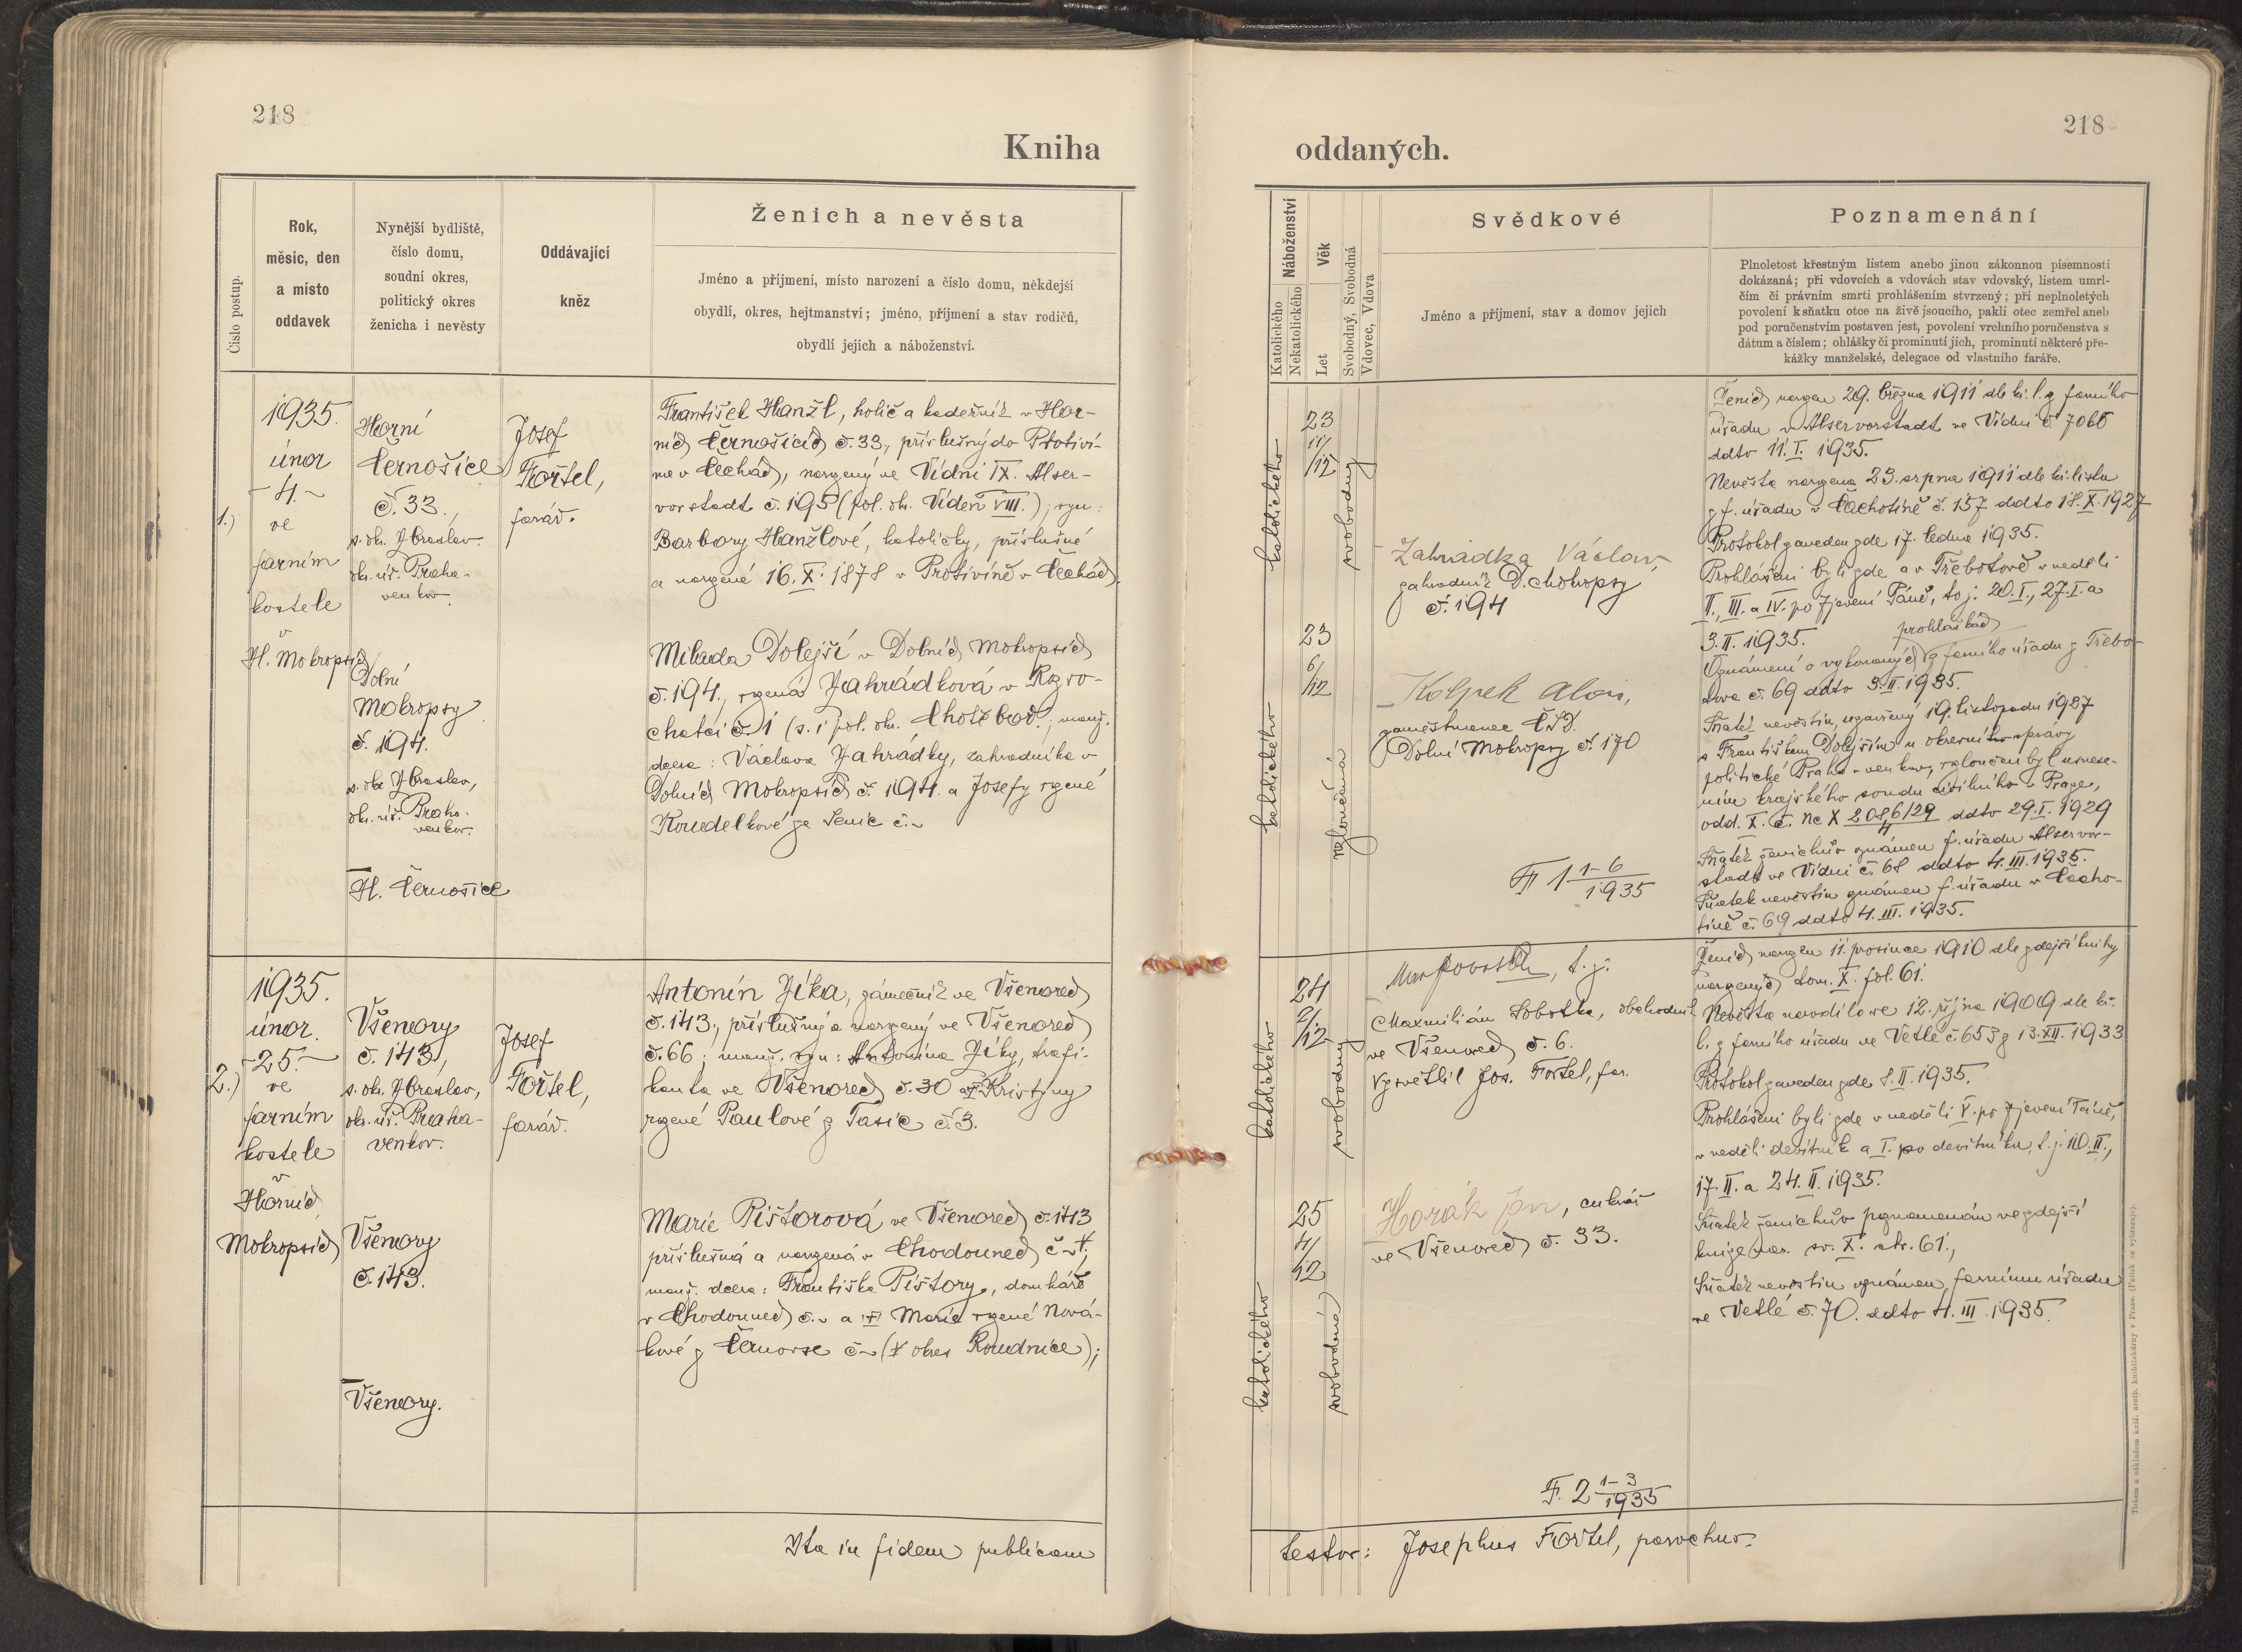 218
Kniha
Číslo postup.
Rok,
měsíc, den
a místo
oddavek
Nynější bydliště,
číslo domu,
soudní okres,
politický okres
ženicha i nevěsty
Oddávající
kněz
Ženich a nevěsta
Jméno a příjmení, místo narození a číslo domu, někdejší
obydlí, okres, hejtmanství; jméno, příjmení a stav rodičů,
obydlí jejich a náboženství.
1.)
1935.
únor
- 4. -
ve
farním
kostele
v
H. Mokropsích
Horní
Černošice
č. 33.,
s. ok. Zbraslav.
ok. úř. Praha-
venkov
Dolní
Mokropsy
č. 194.
s. ok. Zbraslav,
ok. úř. Praha-
venkov.
H. Černošice
Josef
Fořtel,
farář.
František Hanžl, holič a kadeřník v Hor-
ních Černošicích č. 33., příslušný do Protiví-
na v Čechách, narozený ve Vídni IX. Alser-
vorstadt č. 195 (pol. ok. Vídeň VIII.); syn:
Barbory Hanžlové, katoličky, příslušné
a narozené 16. X. 1878 v Protivíně v Čechách.
Milada Dolejší v Dolních Mokropsích
č. 194., rozená Zahrádková v Rozso-
chatci č. 1 (s. i pol. ok. Chotěboř.; manž.
dcera: Václava Zahrádky, zahradníka v
Dolních Mokropsích č. 194. a Josefy rozené
Koudelkové ze Senic č. ~
2.)
1935.
únor.
- 25. -
ve
farním
kostele
v
Horních
Mokropsích
Všenory
č. 143,
s. ok. Zbraslav,
ok. úř. Praha-
venkov.
Všenory
č. 143.
Všenory.
Josef
Fořtel,
farář.
Antonín Jíka, zámečník ve Všenorech
č. 143., příslušný a narozený ve Všenorech
č. 66; manž. syn: Antonína Jíky, trafi-
kanta ve Všenorech č. 30 a Kristýny
rozené Paulové z Tasic č. 3.
Marie Pištorová ve Všenorech č. 143
příslušná a narozená v Chodounech č. ~;
manž. dcera: Františka Pištory, domkáře
v Chodounech č. ~ a Marie rozené Nová-
kové z Černovse č. ~ (okres Roudnice);
Ita in fidem publicam
218
oddaných.
Náboženství
Katolického
Nekatolického
Věk
Let
Svobodný, Svobodná
Vdovec, Vdova
Svědkové
Jméno a příjmení, stav a domov jejich
Poznamenání
Plnoletost křestným listem anebo jinou zákonnou písemností
dokázaná; při vdovcích a vdovách stav vdovský, listem umrl-
čím či právním smrti prohlášením stvrzený; při neplnoletých
povolení k sňatku otce na živě jsoucího, pakli otec zemřel aneb
pod poručenstvím postaven jest, povolení vrchního poručenstva s
dátum a číslem; ohlášky či prominutí jich, prominutí některé pře-
kážky manželské, delegace od vlastního faráře.
katolického
23
11/
/12
svobodný
Zahrádka Václav,
zahradník D. Mokropsy
č. 194
katolického
23
6/
/12
rozloučená
Kolpek Alois,
zaměstnanec ČSD.
Dolní Mokropsy č. 170
F 1 1-6
1935
Ženich narozen 29. března 1911 dle kř. l. z farního
úřadu v Alservorstadt ve Vídni č. 7068
ddto 11. I. 1935.
Nevěsta narozena 23. srpna 1911 dle kř. listu
z f. úřadu v Čachotíně č. 157 ddto 18. X. 1927
Protokol zaveden zde 17. ledna 1935.
Prohlášeni byli zde a v Třebotově v neděli
II., III. a IV. po Zjevení Páně, to j. 20. I., 27. I. a
3. II. 1935. prohláškách
Oznámení o vykonaných z farního úřadu z Třebo-
tova č. 69 ddto 3. II. 1935.
Sňatek nevěstin, uzavřený 19. listopadu 1927
s Františkem Dolejším u okresního správy
politické Praha-venkov, rozloučen byl usnese-
ním krajského soudu civilního v Praze,
odd. X. č. Nc X 2086/29 ddto 29. I. 1929
4
Sňatek ženichův oznámen f. úřadu Alservor-
stadt ve Vídni č. 68 ddto 4. III. 1935.
Sňatek nevěstin oznámen f. úřadu v Čacho-
tíně č. 69 ddto 4. III. 1935.
katolického
24
2/
/12
svobodný
t. j.
Maxmilián Sobotka, obchodník
ve Všenorech č. 6.
Vysvětlil Jos. Fořtel, far.
katolického
25
4/
/12
svobodná
Horák Jan, cukrář
ve Všenorech č. 33.
F. 2 1-3
1935
Ženich narozen 11. prosince 1910 dle zdejší knihy
narozených tom. X. fol. 61.
Nevěsta narodila se 12. října 1909 dle kř.
l. z farního úřadu ve Vetlé č. 653 z 13. XII. 1933
Protokol zaveden zde 8. II. 1935.
Prohlášeni byli zde v neděli V. po Zjevení Páně,
v neděli devítník a I. po devítníku, t. j. 10. II.,
17. II. a 24. II. 1935.
Sňatek ženichův poznamenán ve zdejší
knize nar. sv. X. str. 61.,
Sňatek nevěstin oznámen farnímu úřadu
ve Vetlé č. 70. ddto 4. III. 1935.
testor: Josephus Fořtel, parochus.
Tiskem a nákladem kníž. arcib. knihtiskárny v Praze. (Patisk se vyhrazuje).